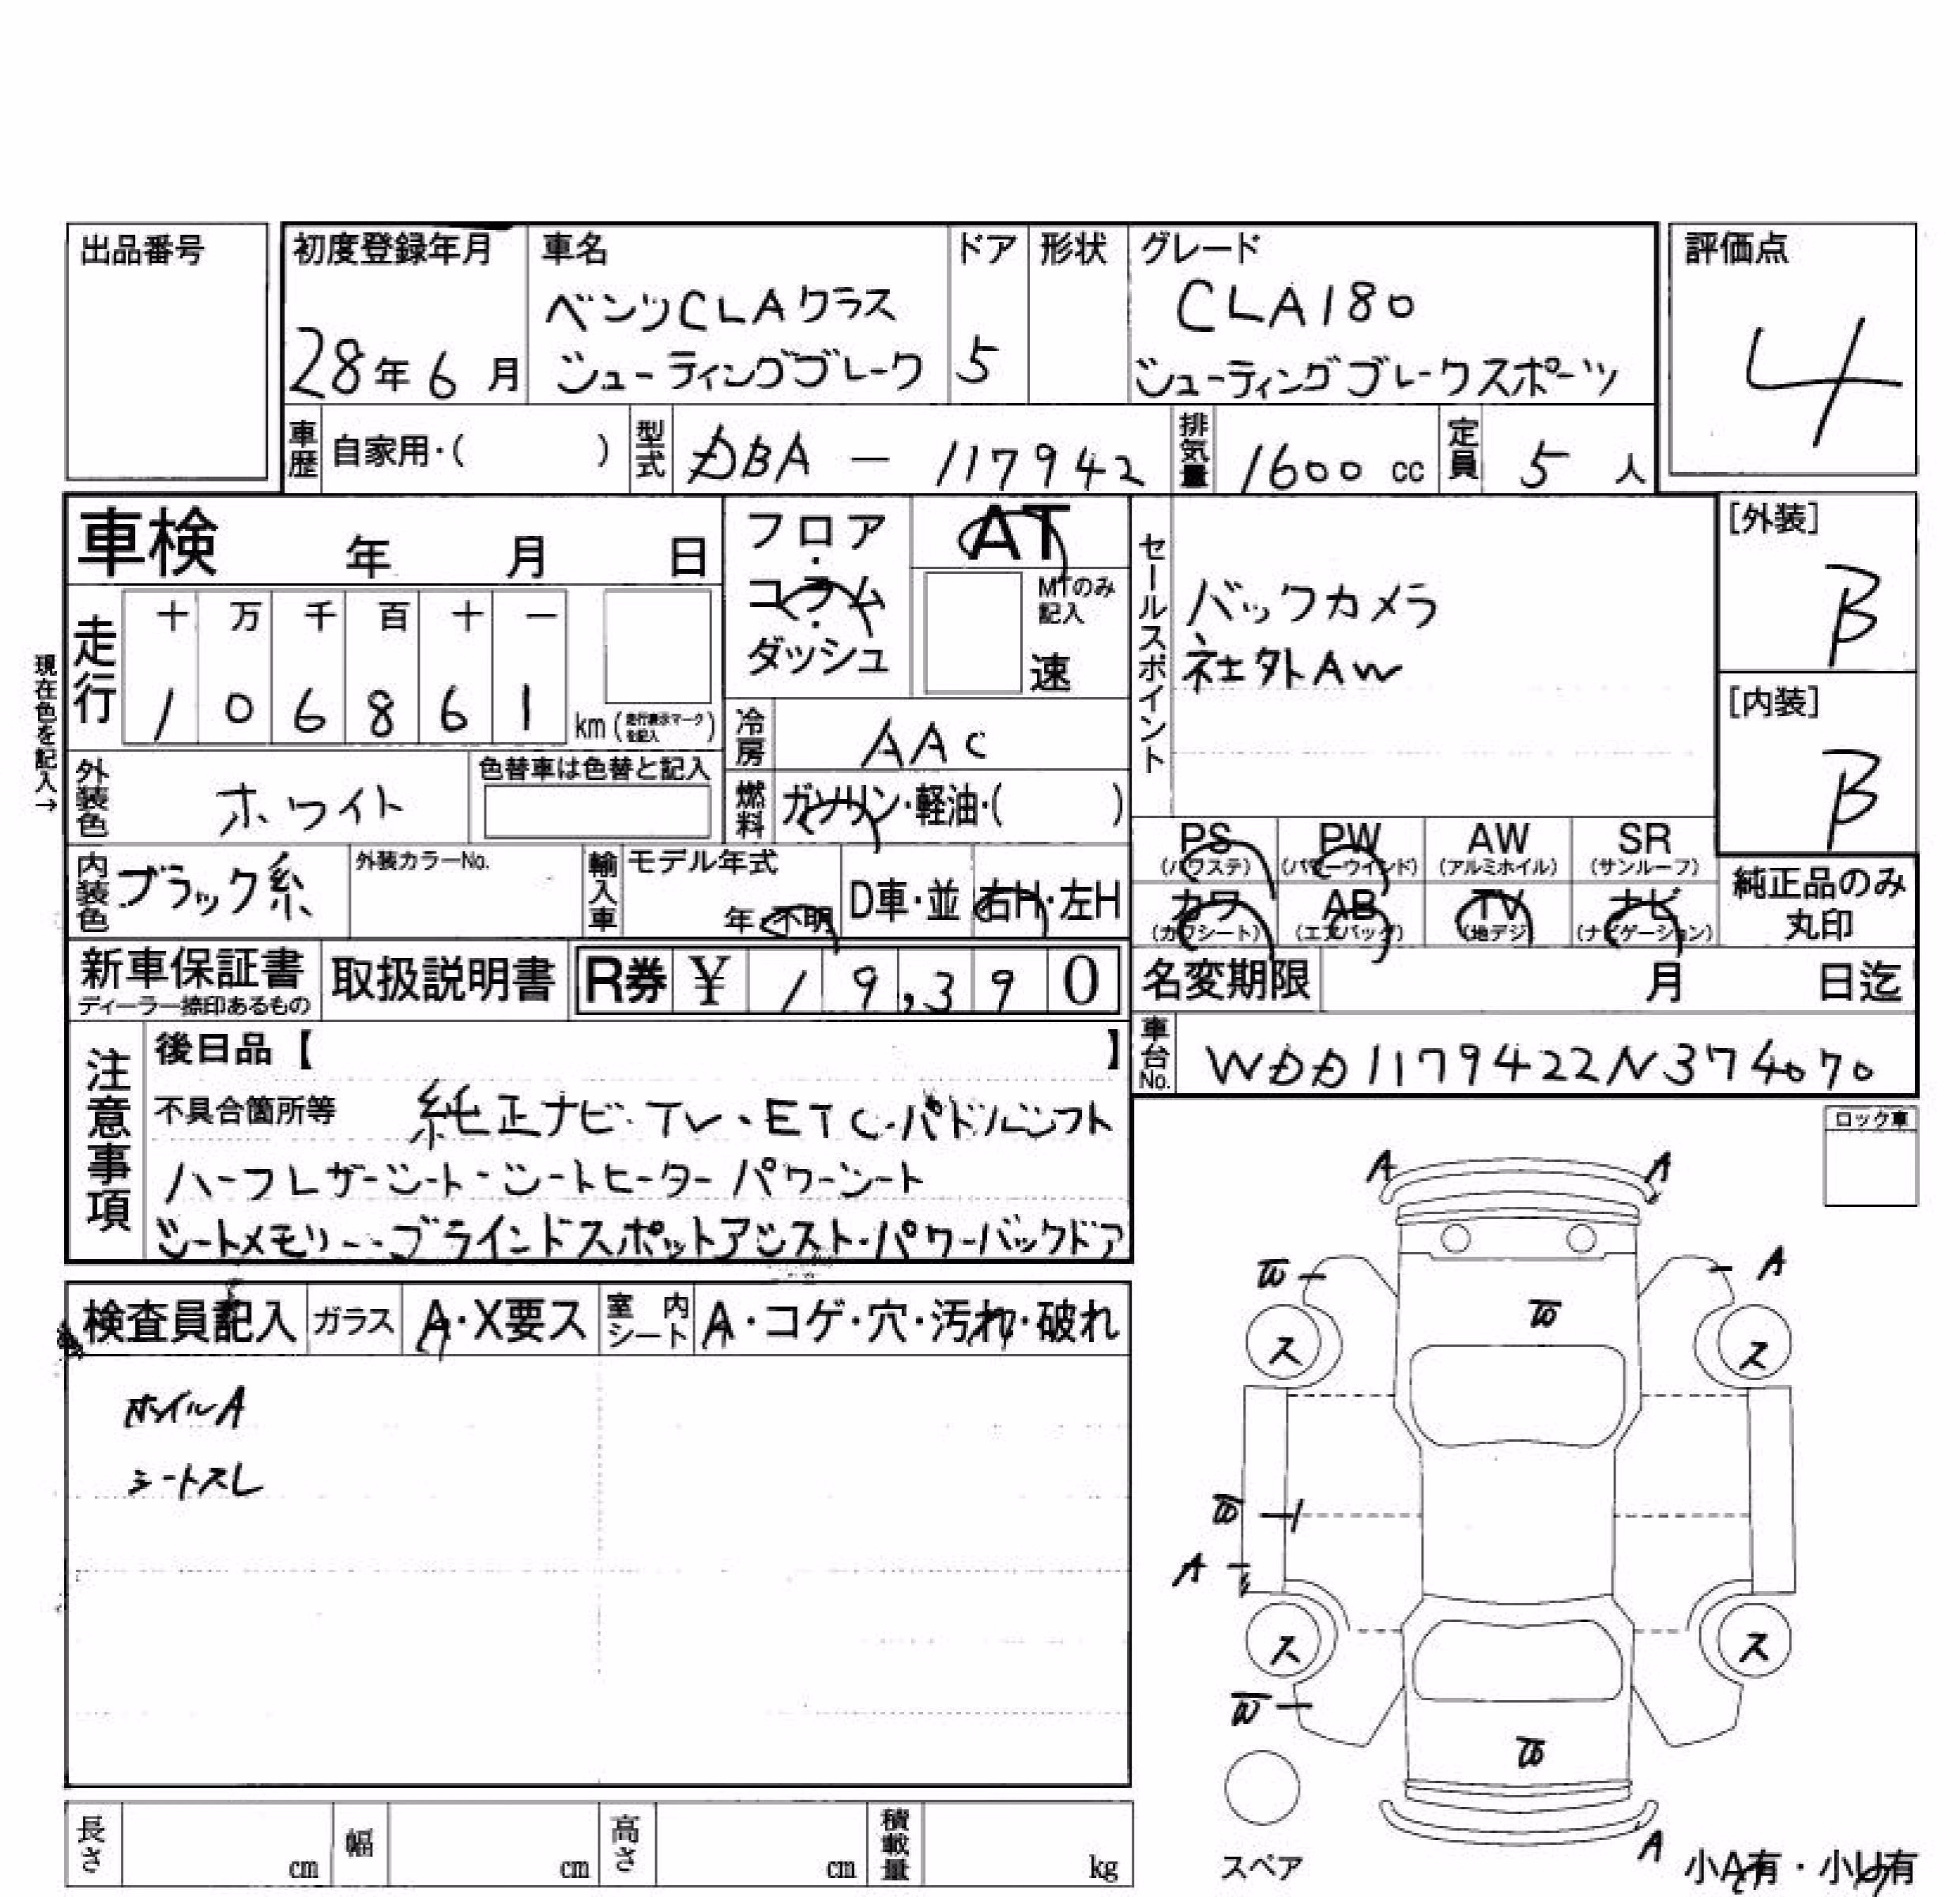 出品番号
初度登録年月 車名 ドア 形状 グレード 評価点
ベンツCLAクラス CLA180
28年6月 シューティングブレーク 5 シューティングブレークスポーツ 4
車歴 自家用・( ) 型式 DBA - 117942 排気量 1600 cc 定員 5 人
車検 年 月 日
フロア・コラム・ダッシュ
AT
MTのみ記入
速
セールスポイント
バックカメラ
社外AW
[外装]
B
[内装]
B
現在色を記入→
走行
十 万 千 百 十 一
1 0 6 8 6 1 km (走行表示マークを記入)
冷房 AAC
外装色 ホワイト 色替車は色替と記入
燃料 ガソリン・軽油・( )
PS (パワステ) PW (パワーウインド) AW (アルミホイル) SR (サンルーフ)
カワ (カワシート) AB (エアバッグ) TV (地デジ) ナビ (ナビゲーション)
純正品のみ丸印
内装色 ブラック系 外装カラーNo. 輸入車 モデル年式 年・不明 D車・並 右H・左H
新車保証書 ディーラー捺印あるもの 取扱説明書 R券 ¥ 19,390
名変期限 月 日迄
車台No. WDD1179422N374070
注意事項
後日品【 】
不具合箇所等 純正ナビ・TV・ETC・パドルシフト
ハーフレザーシート・シートヒーター パワーシート
シートメモリー・ブラインドスポットアシスト・パワーバックドア
検査員記入 ガラス A・X要ス 室内シート A・コゲ・穴・汚れ・破れ
ホイルA
シートスレ
ロック車
A A
A
ス ス
A
ス ス
A
スペア
小A有・小U有
長さ cm 幅 cm 高さ cm 積載量 kg